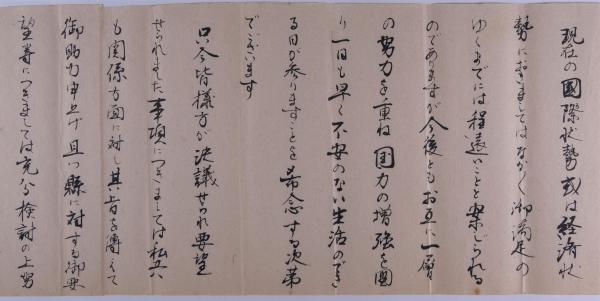 現在の國際状勢或は経済状
勢におきましてはなかなか御満足の
ゆくまでには程遠いことと案じられる
のでありますが今後ともお互に一層
の努力を重ね国力の増強を図
り一日も早く不安のない生活のでき
る日が参りますことを希念する次第
でございます
只今皆様方が決議せられ要望
せられました事項につきましては私共
も関係方面に対し其の旨を伝えて
御助力申上げ且つ縣に対する御要
望等につきましては充分検討の上努